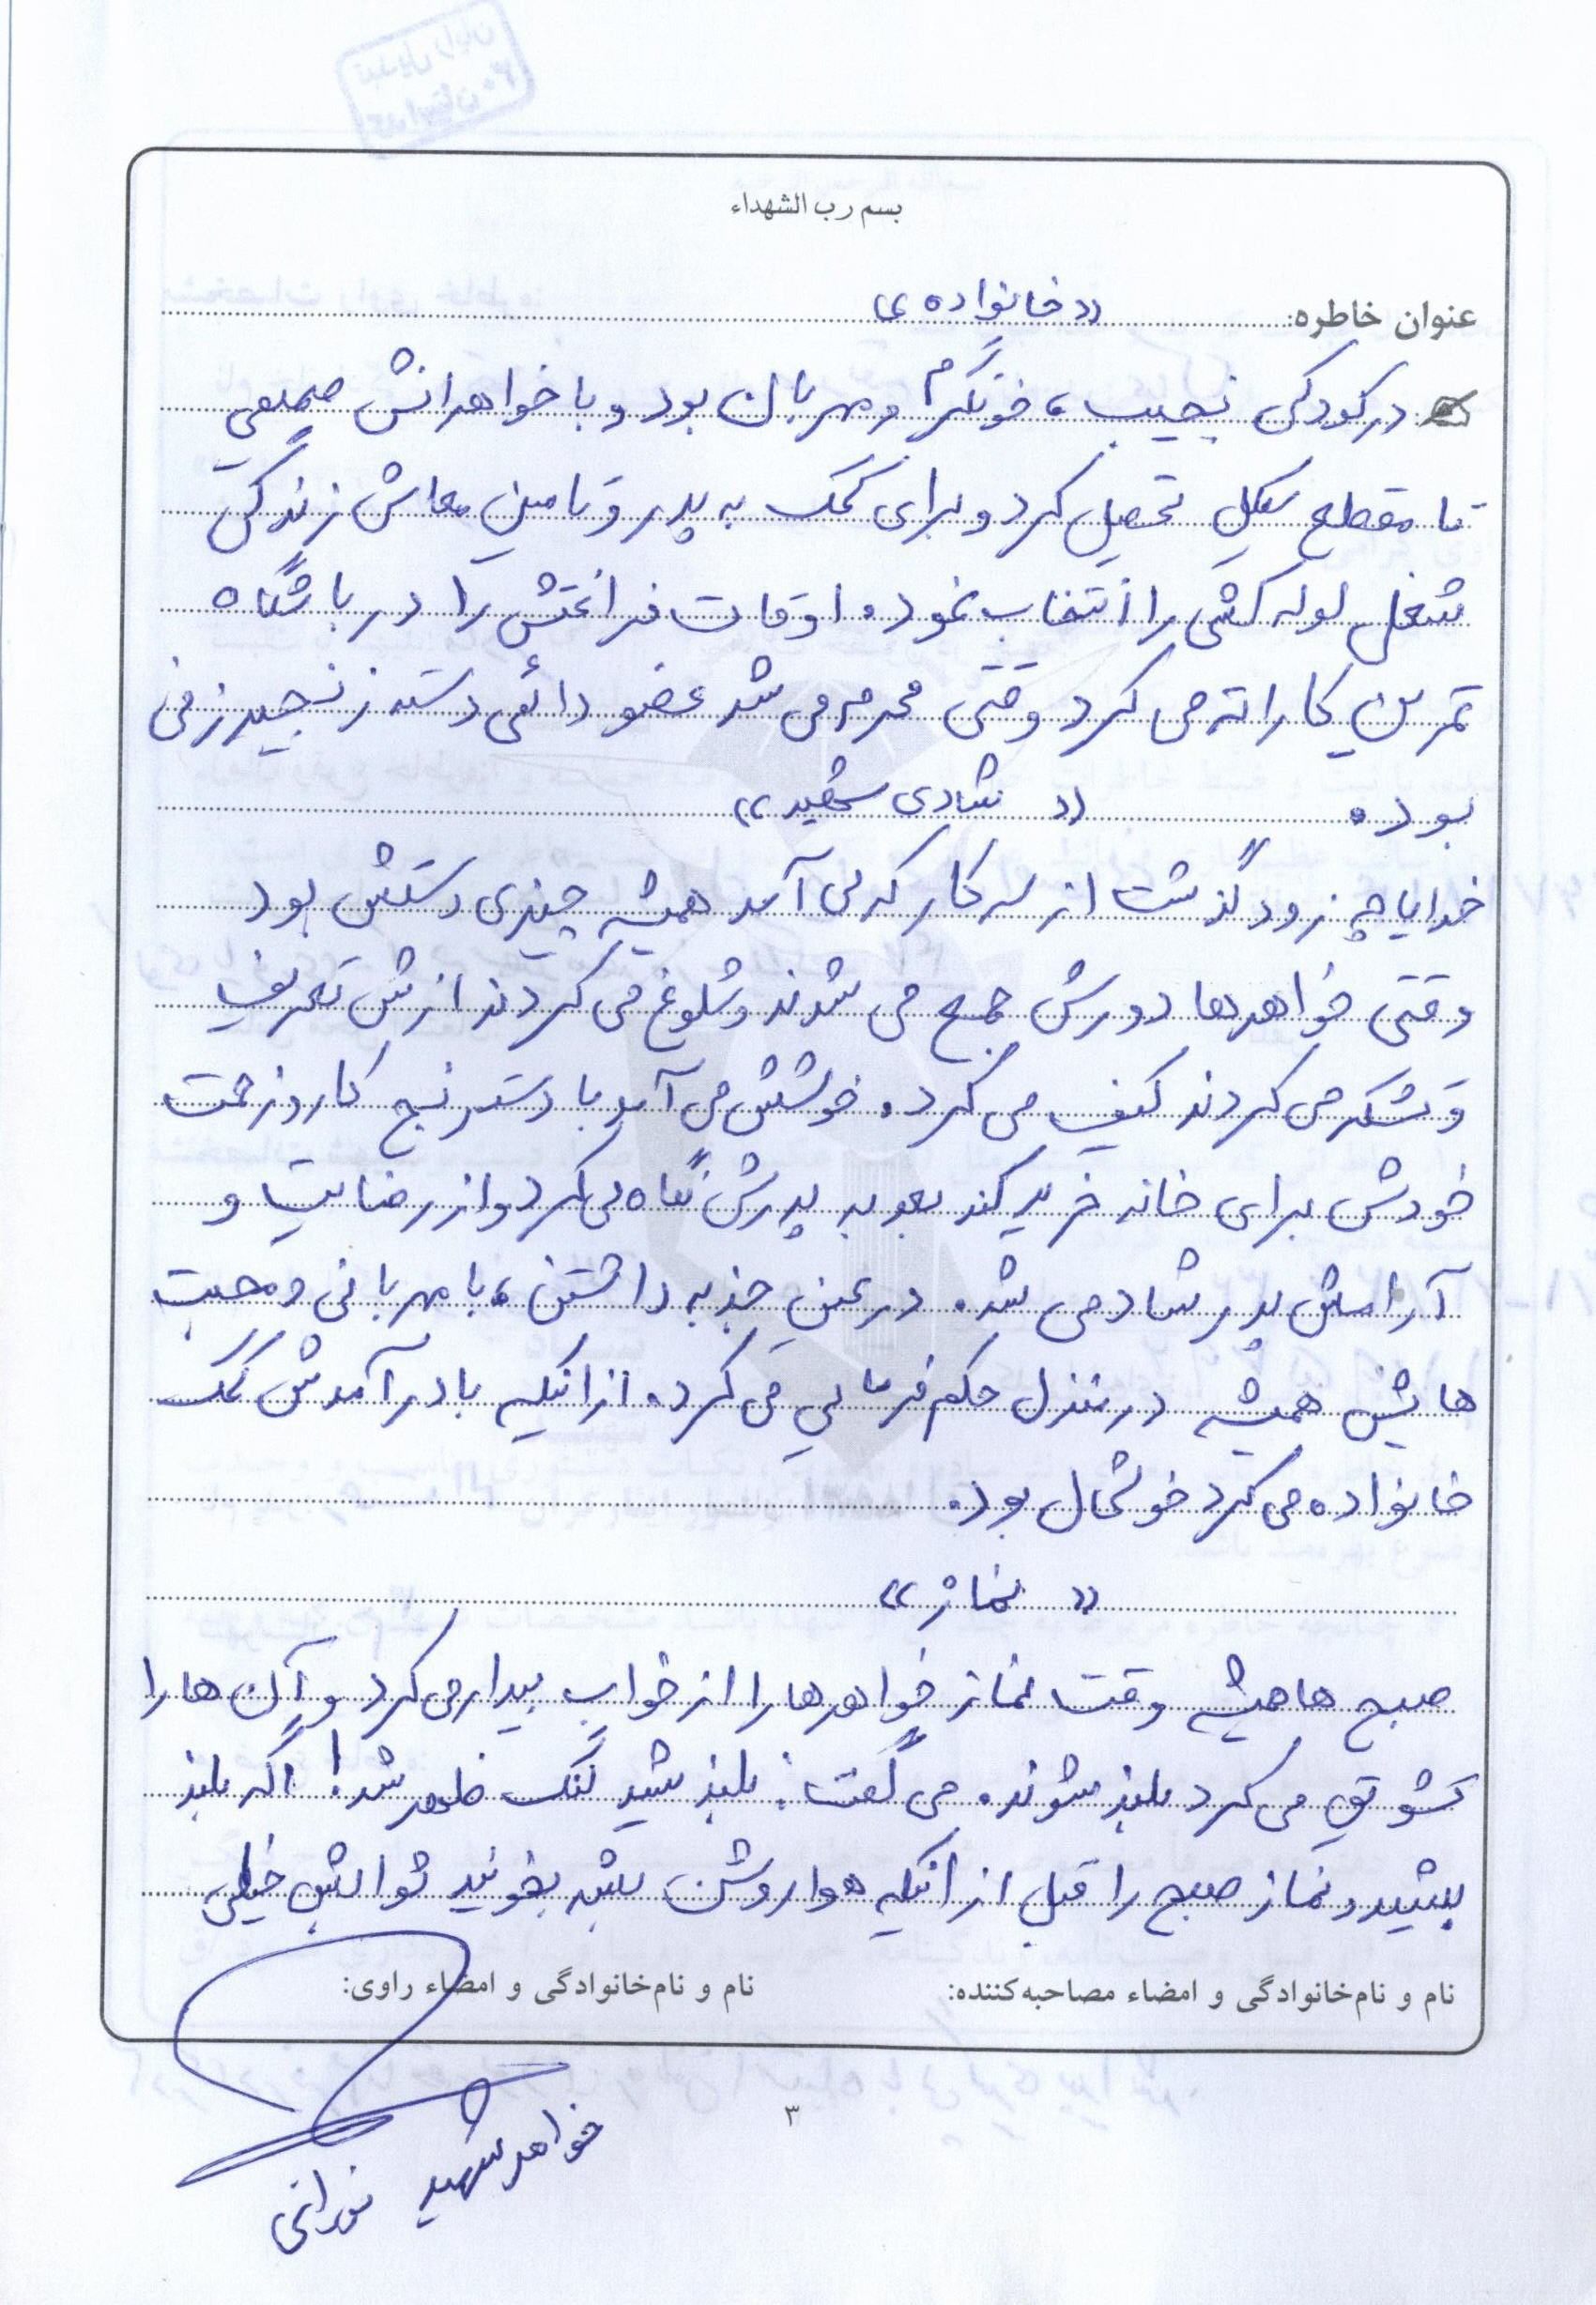 بسم رب الشهداء
عنوان خاطره: «خانواده ی
در کودکی نجیب، خونگرم و مهربان بود و با خواهرانش صمیمی
تا مقطع سیکل تحصیل کرد و برای کمک به پدر و تامین معاش زندگی
شغل لوله کشی را انتخاب نمود. اوقات فراغتش را در باشگاه
تمرین کاراته می کرد وقتی محرم می شد عضو دائمی دسته زنجیرزنی
بود. «شادی سفید»
خدایا چه زود گذشت از سر کار که می آمد همیشه چیزی دستش بود
وقتی خواهرها دورش جمع می شدند و شلوغ می کردند ازش تعریف
و تشکر می کردند کیف می کرد. خوشش می آمد با دسترنج کار و زحمت
خودش برای خانه خرید کند بعد به پدرش نگاه می کرد و از رضایت و
آرامش پدر شاد می شد. در عین جذبه داشتن، با مهربانی و محبت
هایش همیشه در منزل حکم فرمایی می کرد. از اینکه با درآمدش کمک
خانواده می کرد خوشحال بود.
«نماز»
صبح ها همیشه وقت نماز خواهرها را از خواب بیدار می کرد و آن ها را
تشویق می کرد بلند شوند. می گفت: بلند شید لنگ ظهر شد! اگه بلند
بشید و نماز صبح را قبل از اینکه هوا روشن بشه بخونید ثوابش خیلی
نام و نام‌خانوادگی و امضاء مصاحبه‌کننده: نام و نام‌خانوادگی و امضاء راوی:
خواهر شهید نورانی
۳